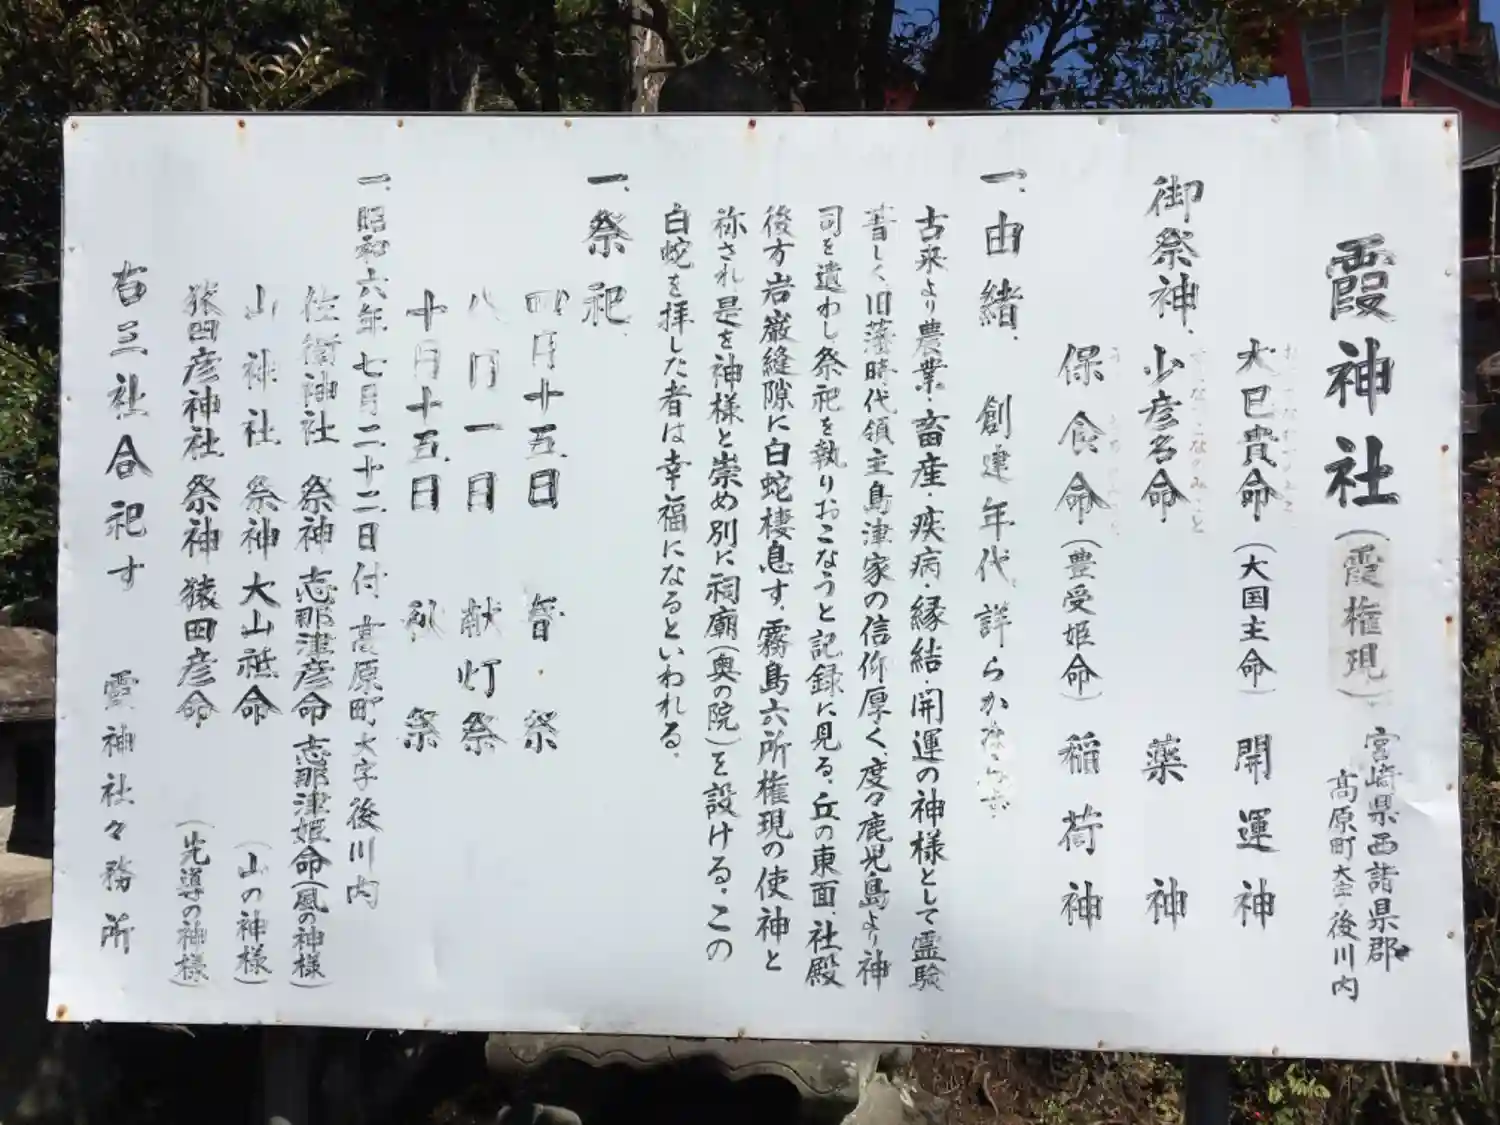 霞神社(霞権現)
宮崎県西諸県郡
高原町大字後川内
大巳貴命(大国主命) 開運神
御祭神、少彦名命 薬神
すくなひこなのみこと
保食命(豊受姫命) 稲荷神
一、由緒、創建年代、詳らかならず
古来より農業・畜産・疾病・縁結・開運の神様として霊験
著しく、旧藩時代領主島津家の信仰厚く、度々鹿児島より神
司を遣わし祭祀を執りおこなうと記録に見る。丘の東面、社殿
後方岩巌縫隙に白蛇棲息す、霧島六所権現の使神と
祢され是を神様と崇め別に祠廟(奥の院)を設ける。この
白蛇を拝した者は幸福になるといわれる。
一、祭祀
四月十五日 春祭
八月一日 献灯祭
十月十五日 秋祭
一、昭和六年七月二十二日付 高原町大字後川内
佐衛神社 祭神 志那津彦命 志那津姫命(風の神様)
山神社 祭神 大山祗命 (山の神様)
猿田彦神社 祭神 猿田彦命 (先導の神様)
右三社合祀す 霞神社々務所